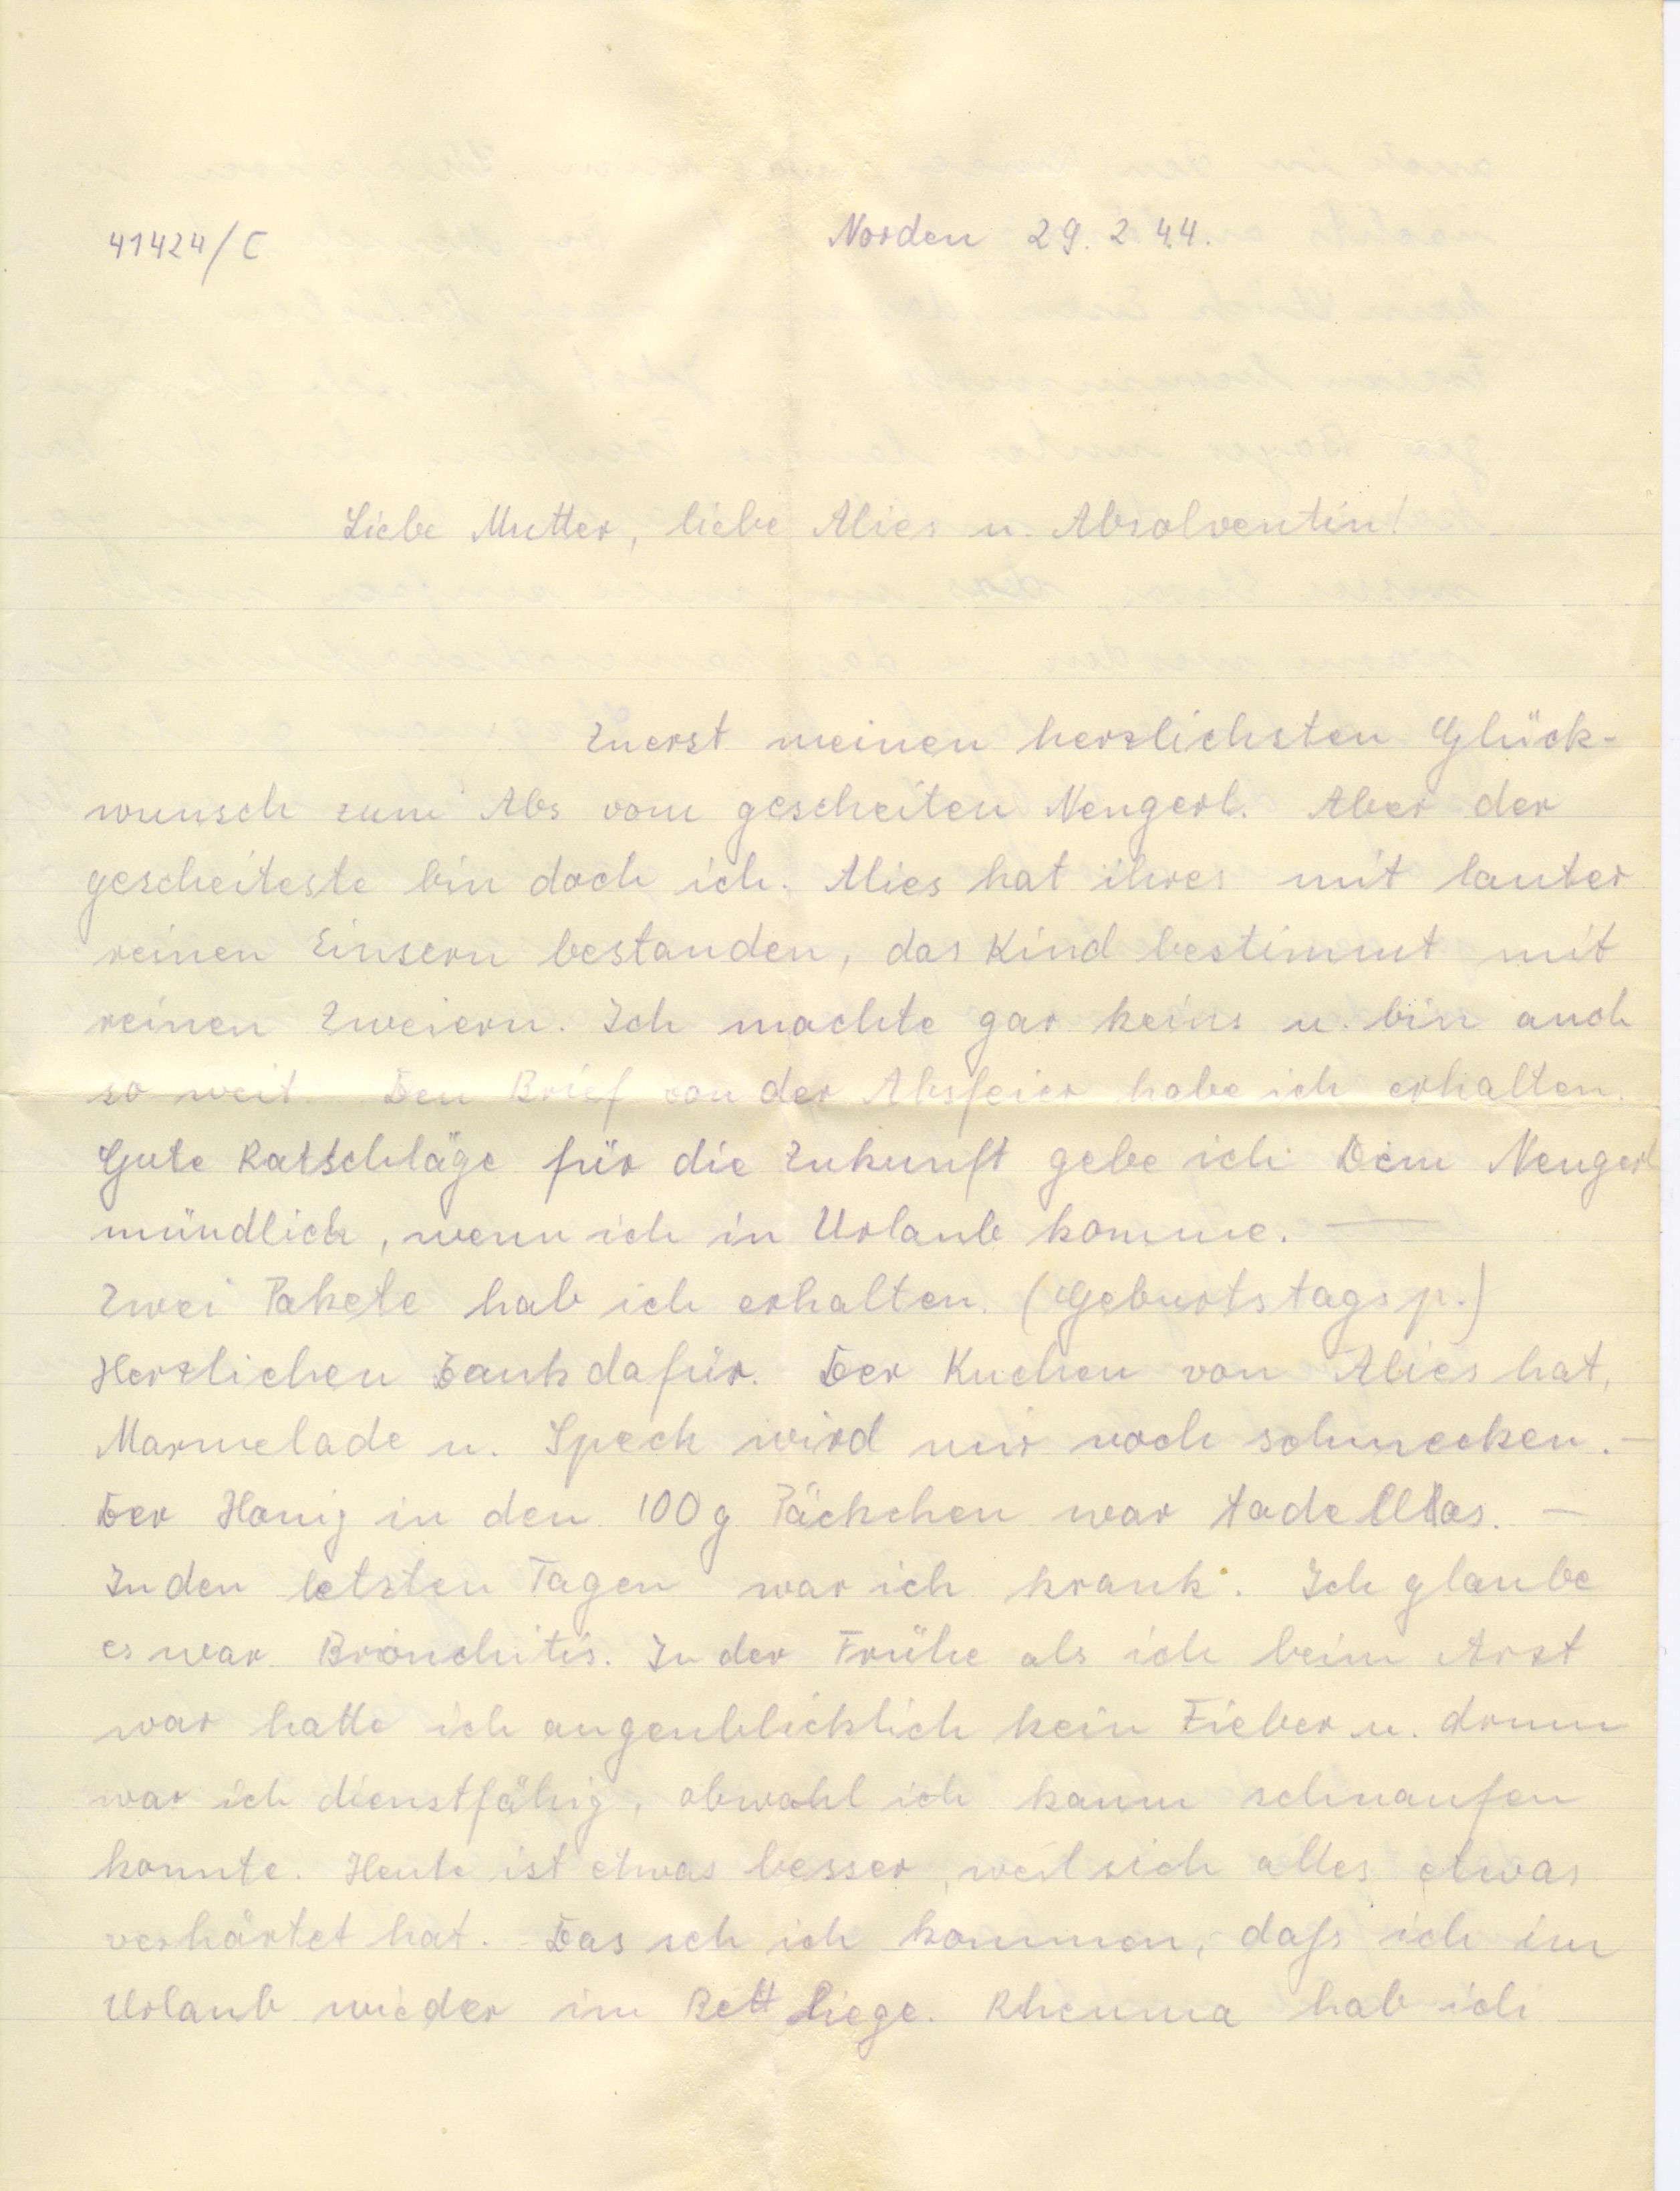 41424/C
Norden 29.2.44.
Liebe Mutter, liebe Alies u. Absolventin!
Zuerst meinen herzlichsten Glück-
wunsch zum Abs vom gescheiten Nengerl. Aber der
gescheiteste bin doch ich. Alies hat ihres mit lauter
reinen Einsern bestanden, das Kind bestimmt mit
reinen Zweiern. Ich machte gar keins u. bin auch
so weit. Den Brief von der Absfeier habe ich erhalten.
Gute Ratschläge für die Zukunft gebe ich Dem Nengerl
mündlich, wenn ich in Urlaub komme. —
Zwei Pakete hab ich erhalten. (Geburtstagsp.)
Herzlichen Dank dafür. Der Kuchen von Alies hat,
Marmelade u. Speck wird mir noch schmecken. —
Der Honig in den 100 g Päckchen war tadellos. —
In den letzten Tagen war ich krank. Ich glaube
es war Bronchitis. In der Frühe als ich beim Arzt
war hatte ich augenblicklich kein Fieber u. drum
war ich dienstfähig, obwohl ich kaum schnaufen
konnte. Heute ist etwas besser, weil sich alles etwas
verhärtet hat. Das seh ich kommen, daß ich im
Urlaub wieder im Bett liege. Rheuma hab ich